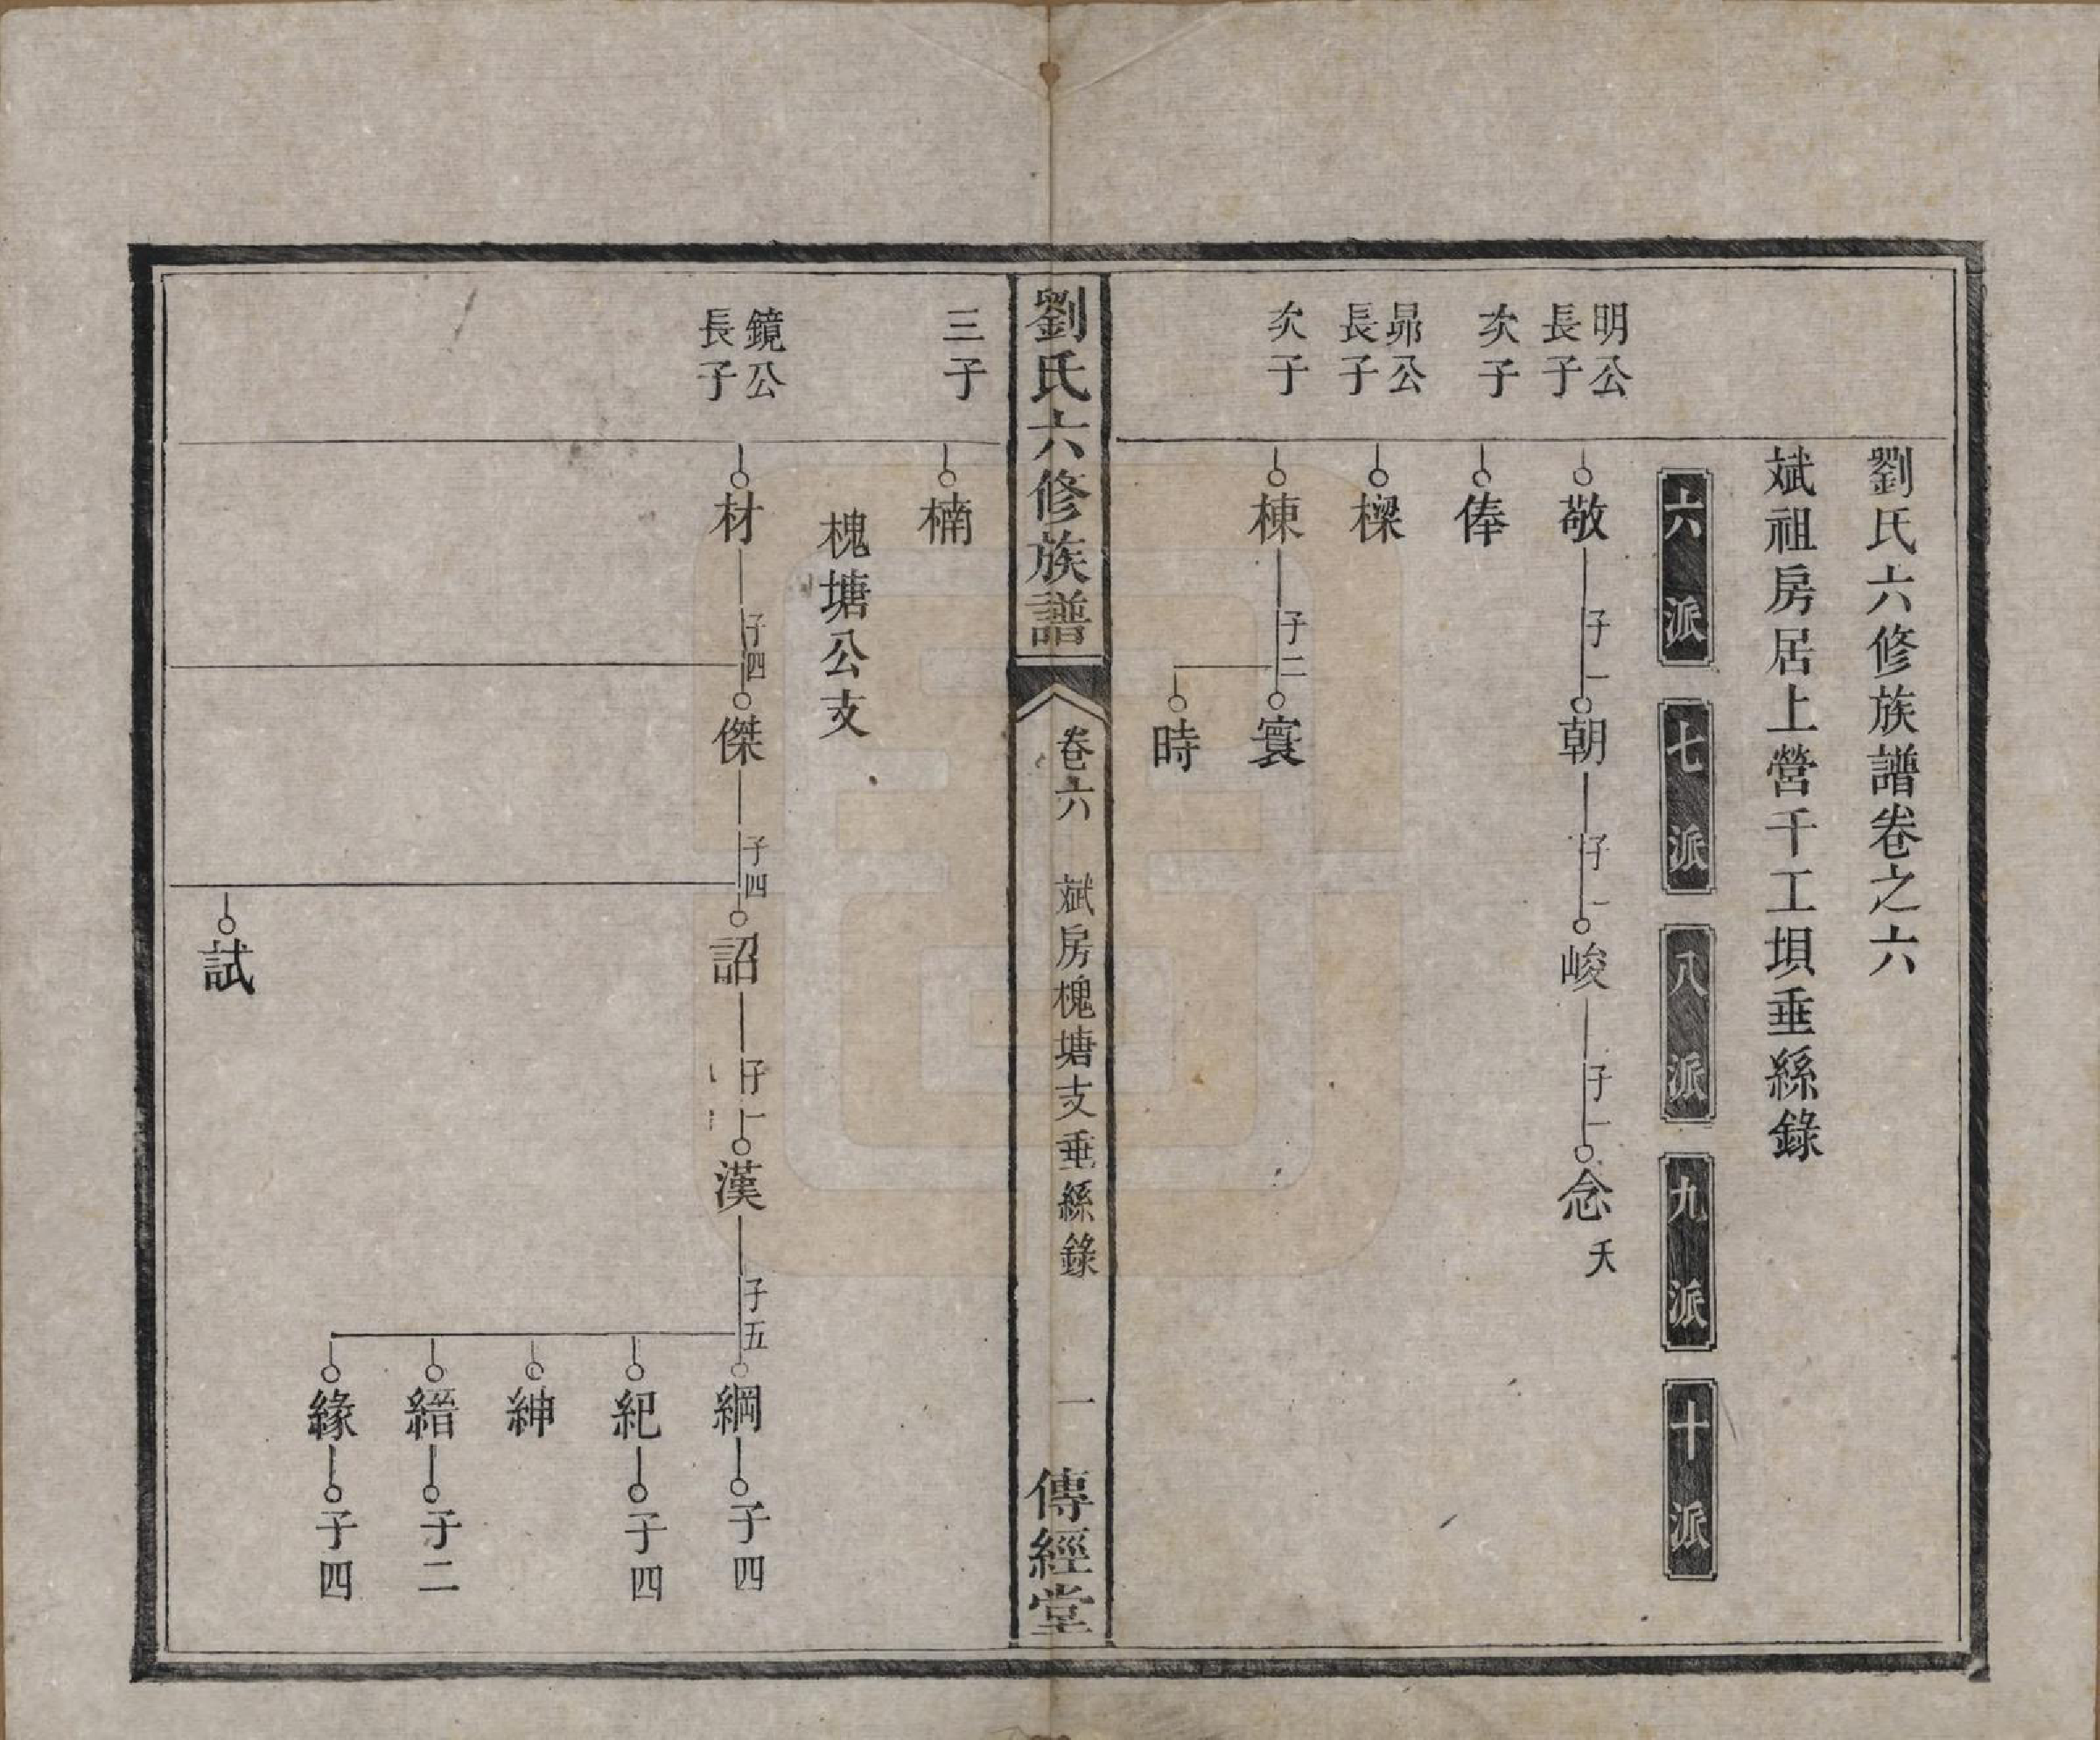 劉氏六修族譜卷之六
斌祖房居上營千工垻垂絲錄
六派
七派
八派
九派
十派
明公長子
敬
子一
朝
子一
峻
子一
念
夭
次子
俸
昴公長子
樑
次子
棟
子二
寰
時
劉氏六修族譜
卷六
斌房槐塘支垂絲錄
一
傳經堂
三子
楠
槐塘公支
鏡公長子
材
子四
傑
子四
詔
子一
漢
子五
綱
子四
紀
子四
紳
縉
子二
緣
子四
試